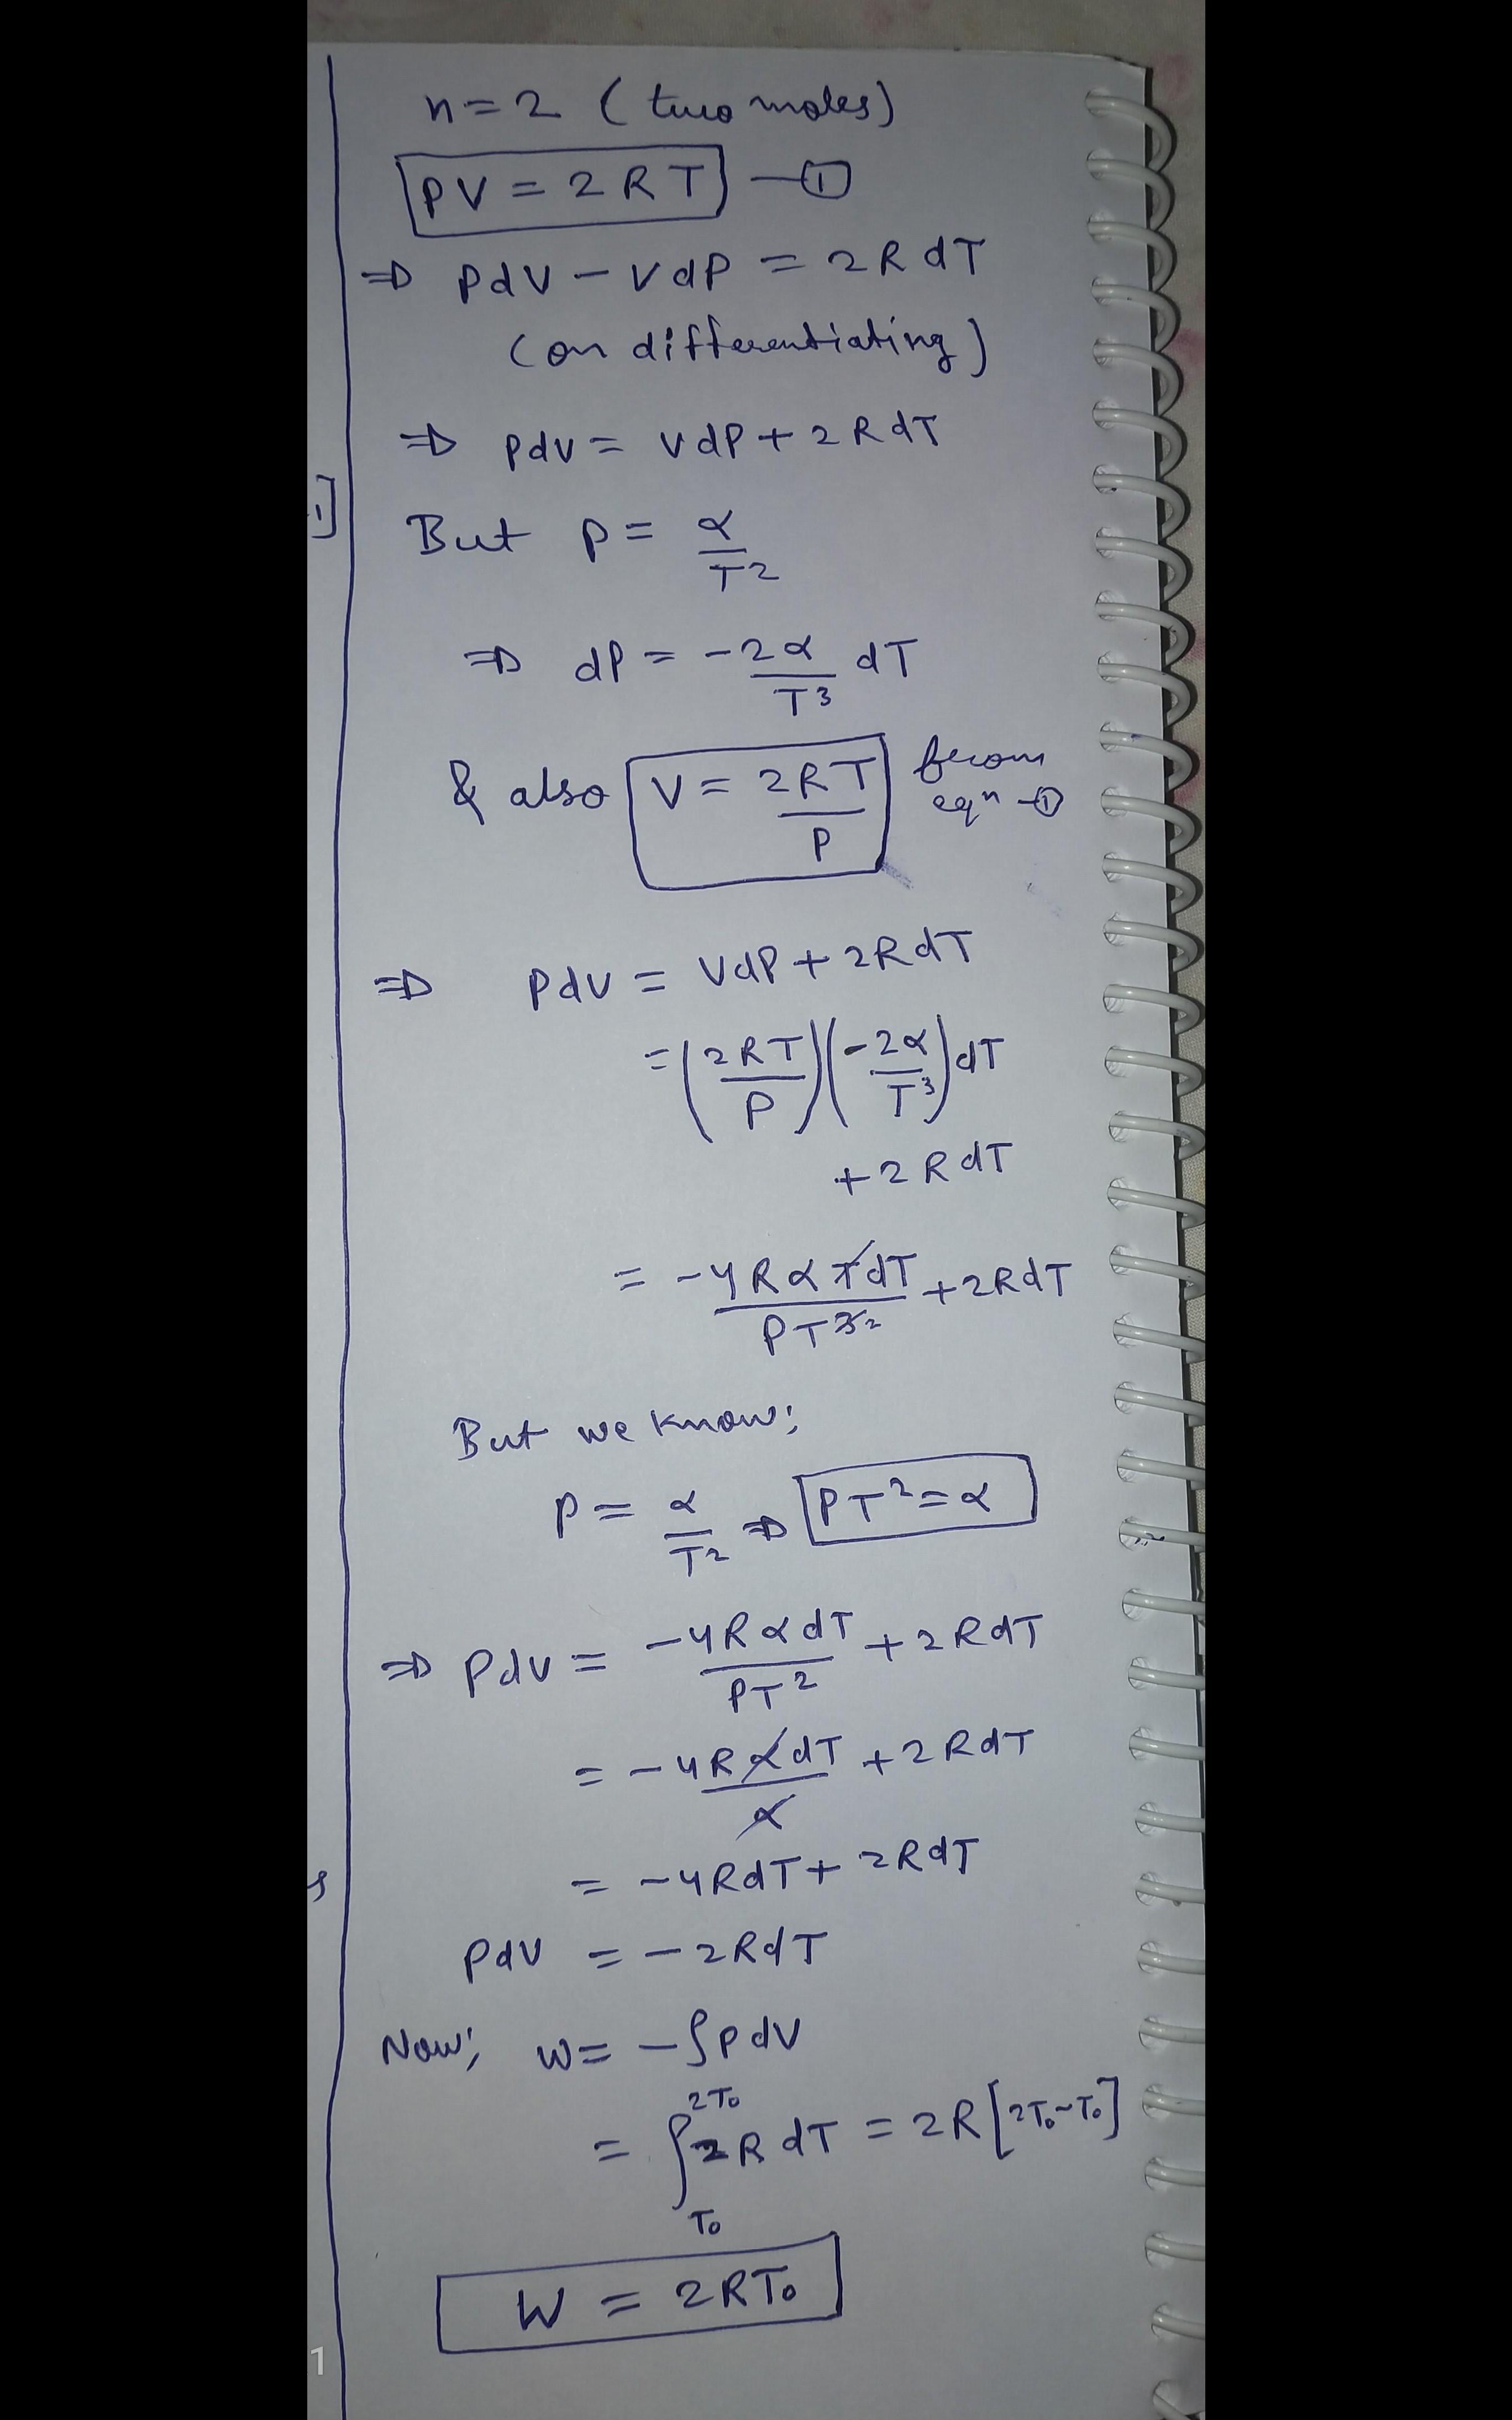 n = 2 (two moles)
PV = 2RT — ①
⇒ PdV − VdP = 2RdT
(on differentiating)
⇒ PdV = VdP + 2RdT
But P = α/T²
⇒ dP = −2α/T³ dT
& also V = 2RT/P from eqⁿ ①
⇒ PdV = VdP + 2RdT
= (2RT/P)(−2α/T³)dT
+ 2RdT
= −4RαTdT/PT³² + 2RdT
But we know;
P = α/T² ⇒ PT² = α
⇒ PdV = −4RαdT/PT² + 2RdT
= −4RαdT/α + 2RdT
= −4RdT + 2RdT
PdV = −2RdT
Now; W = −∫PdV
= ∫_{T₀}^{2T₀} 2R dT = 2R[2T₀−T₀]
W = 2RT₀
1